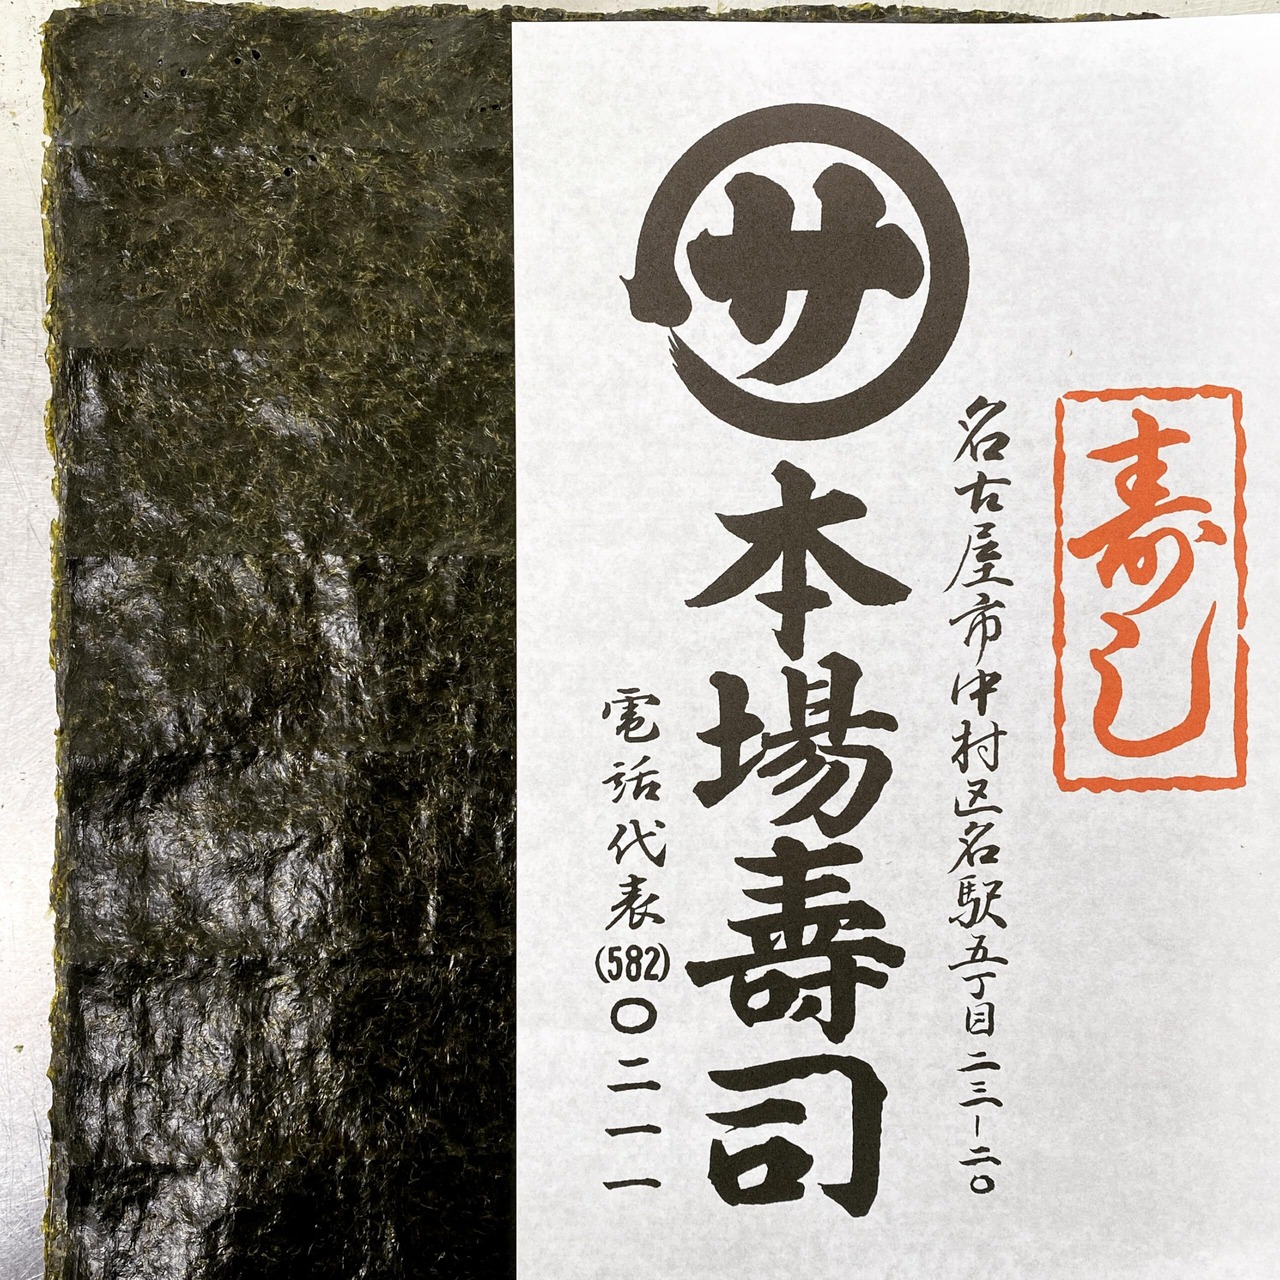 寿し
名古屋市中村区名駅五丁目二三ー二〇
サ
本場壽司
電話代表(582)〇二一一